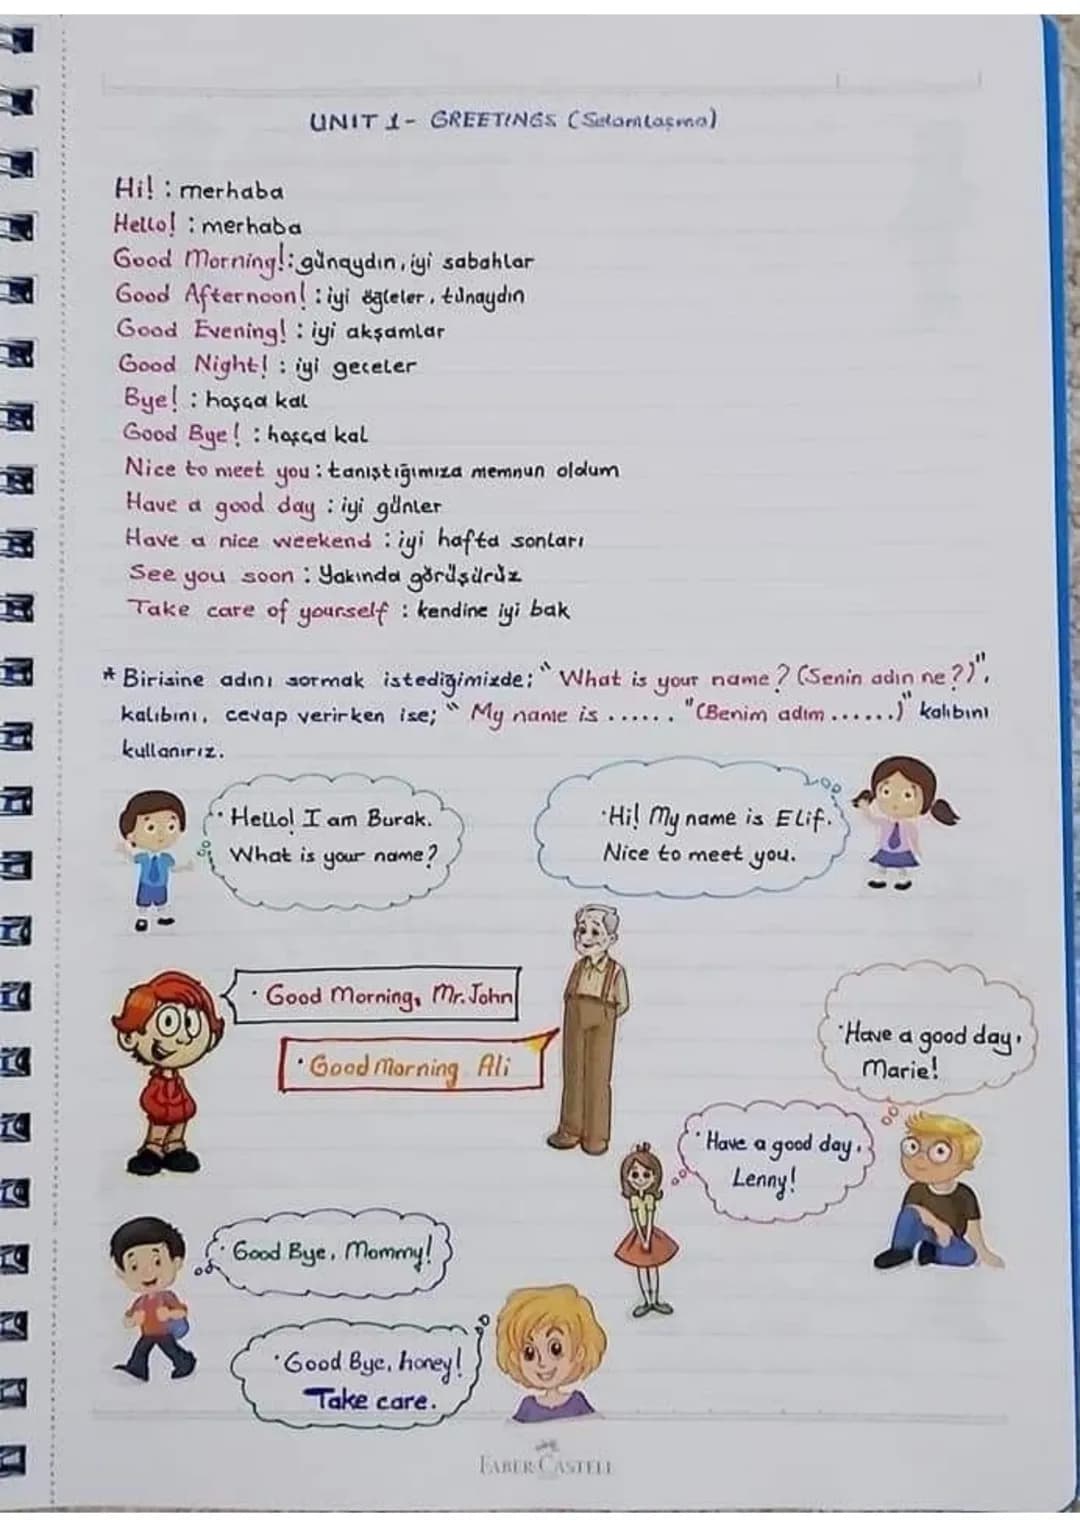 UNIT 1- GREETINGS (Selamlaşma)
Hi! : merhaba
Hello! : merhaba
Good Morning! : günaydın, iyi sabahlar
Good Afternoon! : iyi öğleler, tünaydın
Good Evening! : iyi akşamlar
Good Night! : iyi geceler
Bye! : hoşça kal
Good Bye! : hoşça kal
Nice to meet you : tanıştığımıza memnun oldum
Have a good day : iyi günler
Have a nice weekend : iyi hafta sonları
See you soon : Yakında görüşürüz
Take care of yourself : kendine iyi bak
* Birisine adını sormak istediğimizde; "What is your name? (Senin adın ne?)",
kalıbını, cevap verirken ise; "My name is ......" (Benim adım ......)" kalıbını
kullanırız.
· Hello! I am Burak.
What is your name?
·Hi! My name is Elif.
Nice to meet you.
· Good Morning, Mr. John
· Good Morning Ali
·Have a good day,
Marie!
· Have a good day,
Lenny!
· Good Bye, Mommy!
·Good Bye, honey!
Take care.
FABER-CASTELL